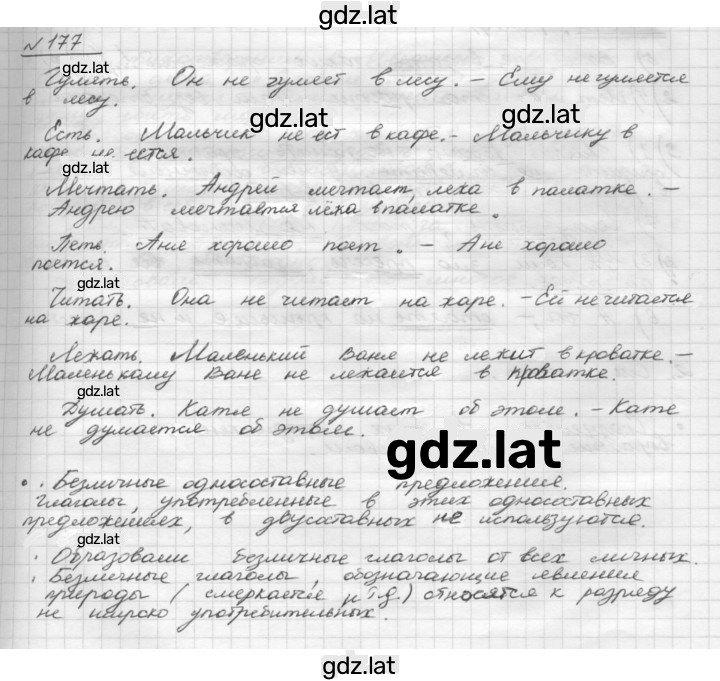 gdz.lat
N 177
gdz.lat
Гулять. Он не гуляет в лесу. – Ему не гуляется
в лесу.
gdz.lat
gdz.lat
Есть. Мальчик не ест в кафе. – Мальчику в
кафе не естся.
gdz.lat
Мечтать. Андрей мечтает, лежа в палатке. –
Андрею мечтается лёжа в палатке.
Петь. Аня хорошо поет. – Ане хорошо
поется.
gdz.lat
Читать. Она не читает на жаре. – Ей не читается
на жаре.
Лежать. Маленький Ваня не лежит в кроватке. –
Маленькому Ване не лежается в кроватке.
gdz.lat
Думать. Катя не думает об этом. – Кате
не думается об этом.
gdz.lat
Безличные односоставные предложения.
Глаголы, употребленные в этих односоставных
предложениях, в двусоставных не используются.
gdz.lat
Образовали безличные глаголы от всех личных.
Безличные глаголы, обозначающие явления
природы (смеркается и т.д.) относятся к разряду
не широко употребительных.
gdz.lat